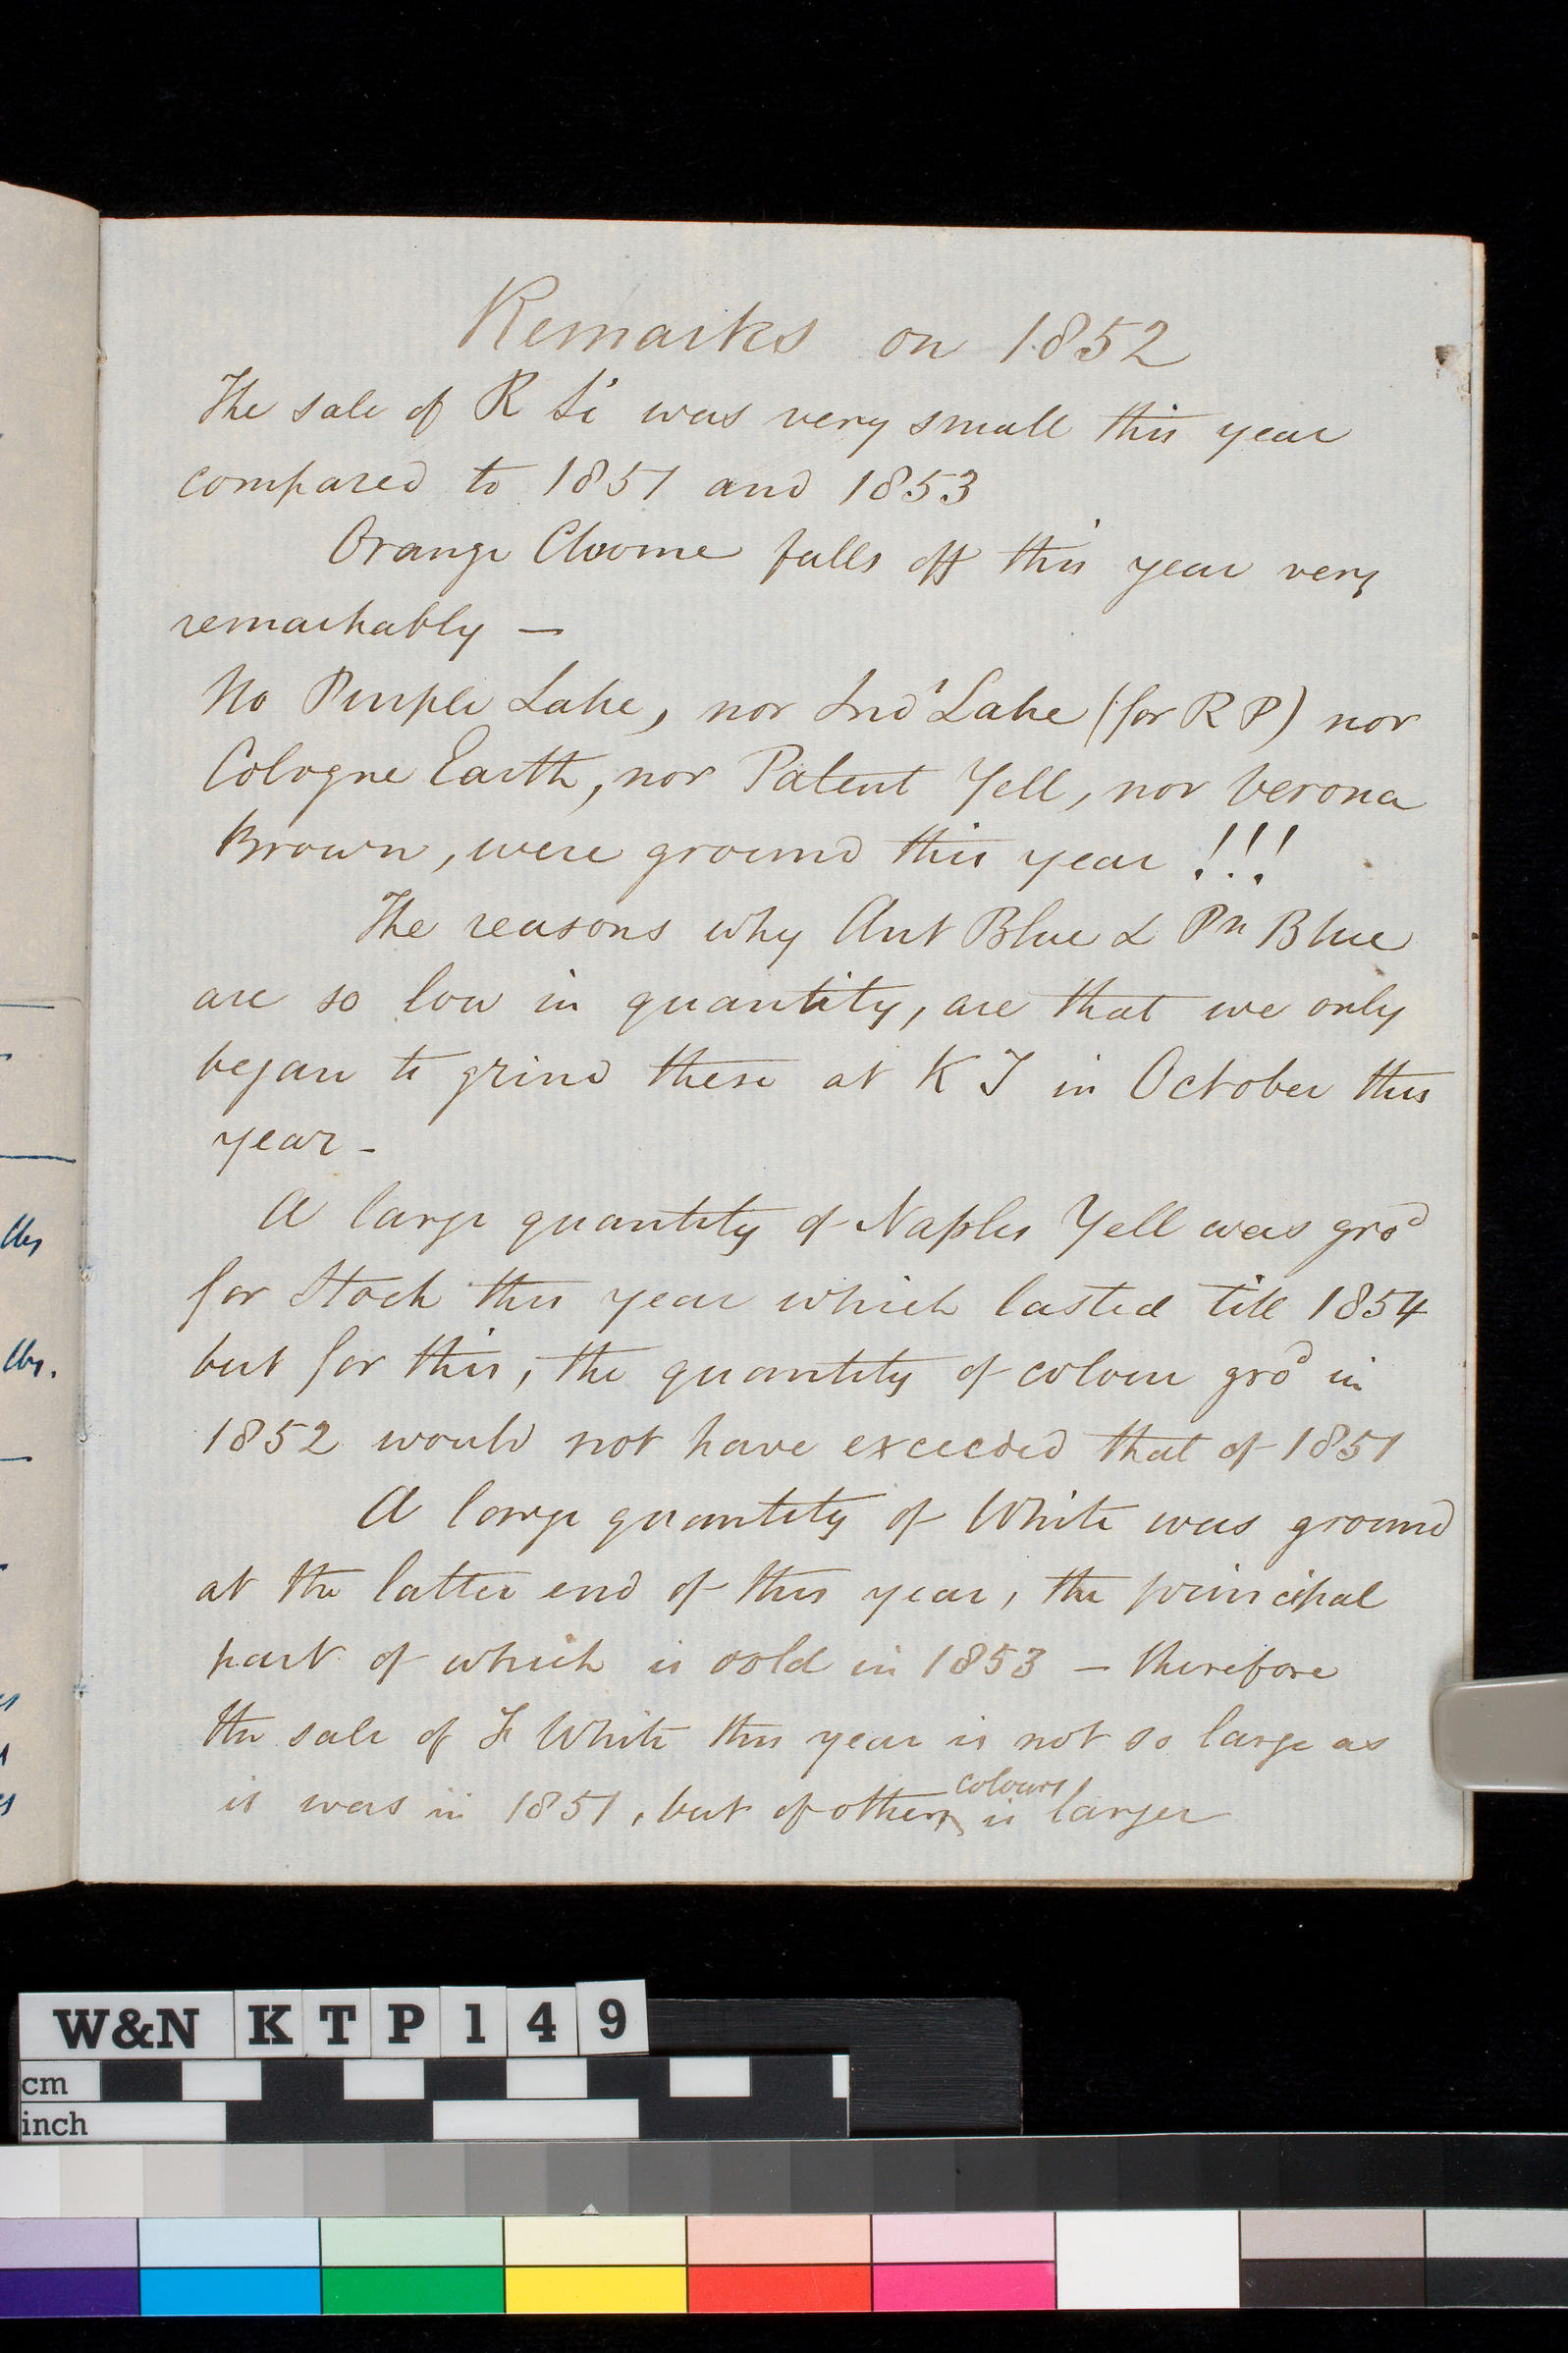 Remarks on 1852
The sale of R Si was very small this year
compared to 1851 and 1853
Orange Chrome falls off this year very
remarkably —
No Purple Lake, nor Ind' Lake (for R P) nor
Cologne Earth, nor Patent Yell, nor Verona
Brown, were ground this year !!!
The reasons why Ant Blue & Pn Blue
are so low in quantity, are that we only
began to grind these at K T in October this
year -
A large quantity of Naples Yell was gro^d
for Stock this year which lasted till 1854
but for this, the quantity of colour gro^d in
1852 would not have exceeded that of 1851
A large quantity of White was ground
at the latter end of this year, the principal
part of which is sold in 1853 — therefore
the sale of F White this year is not so large as
it was in 1851, but of other colours is larger
lbs
lbs.
W&N K T P 1 4 9
cm
inch